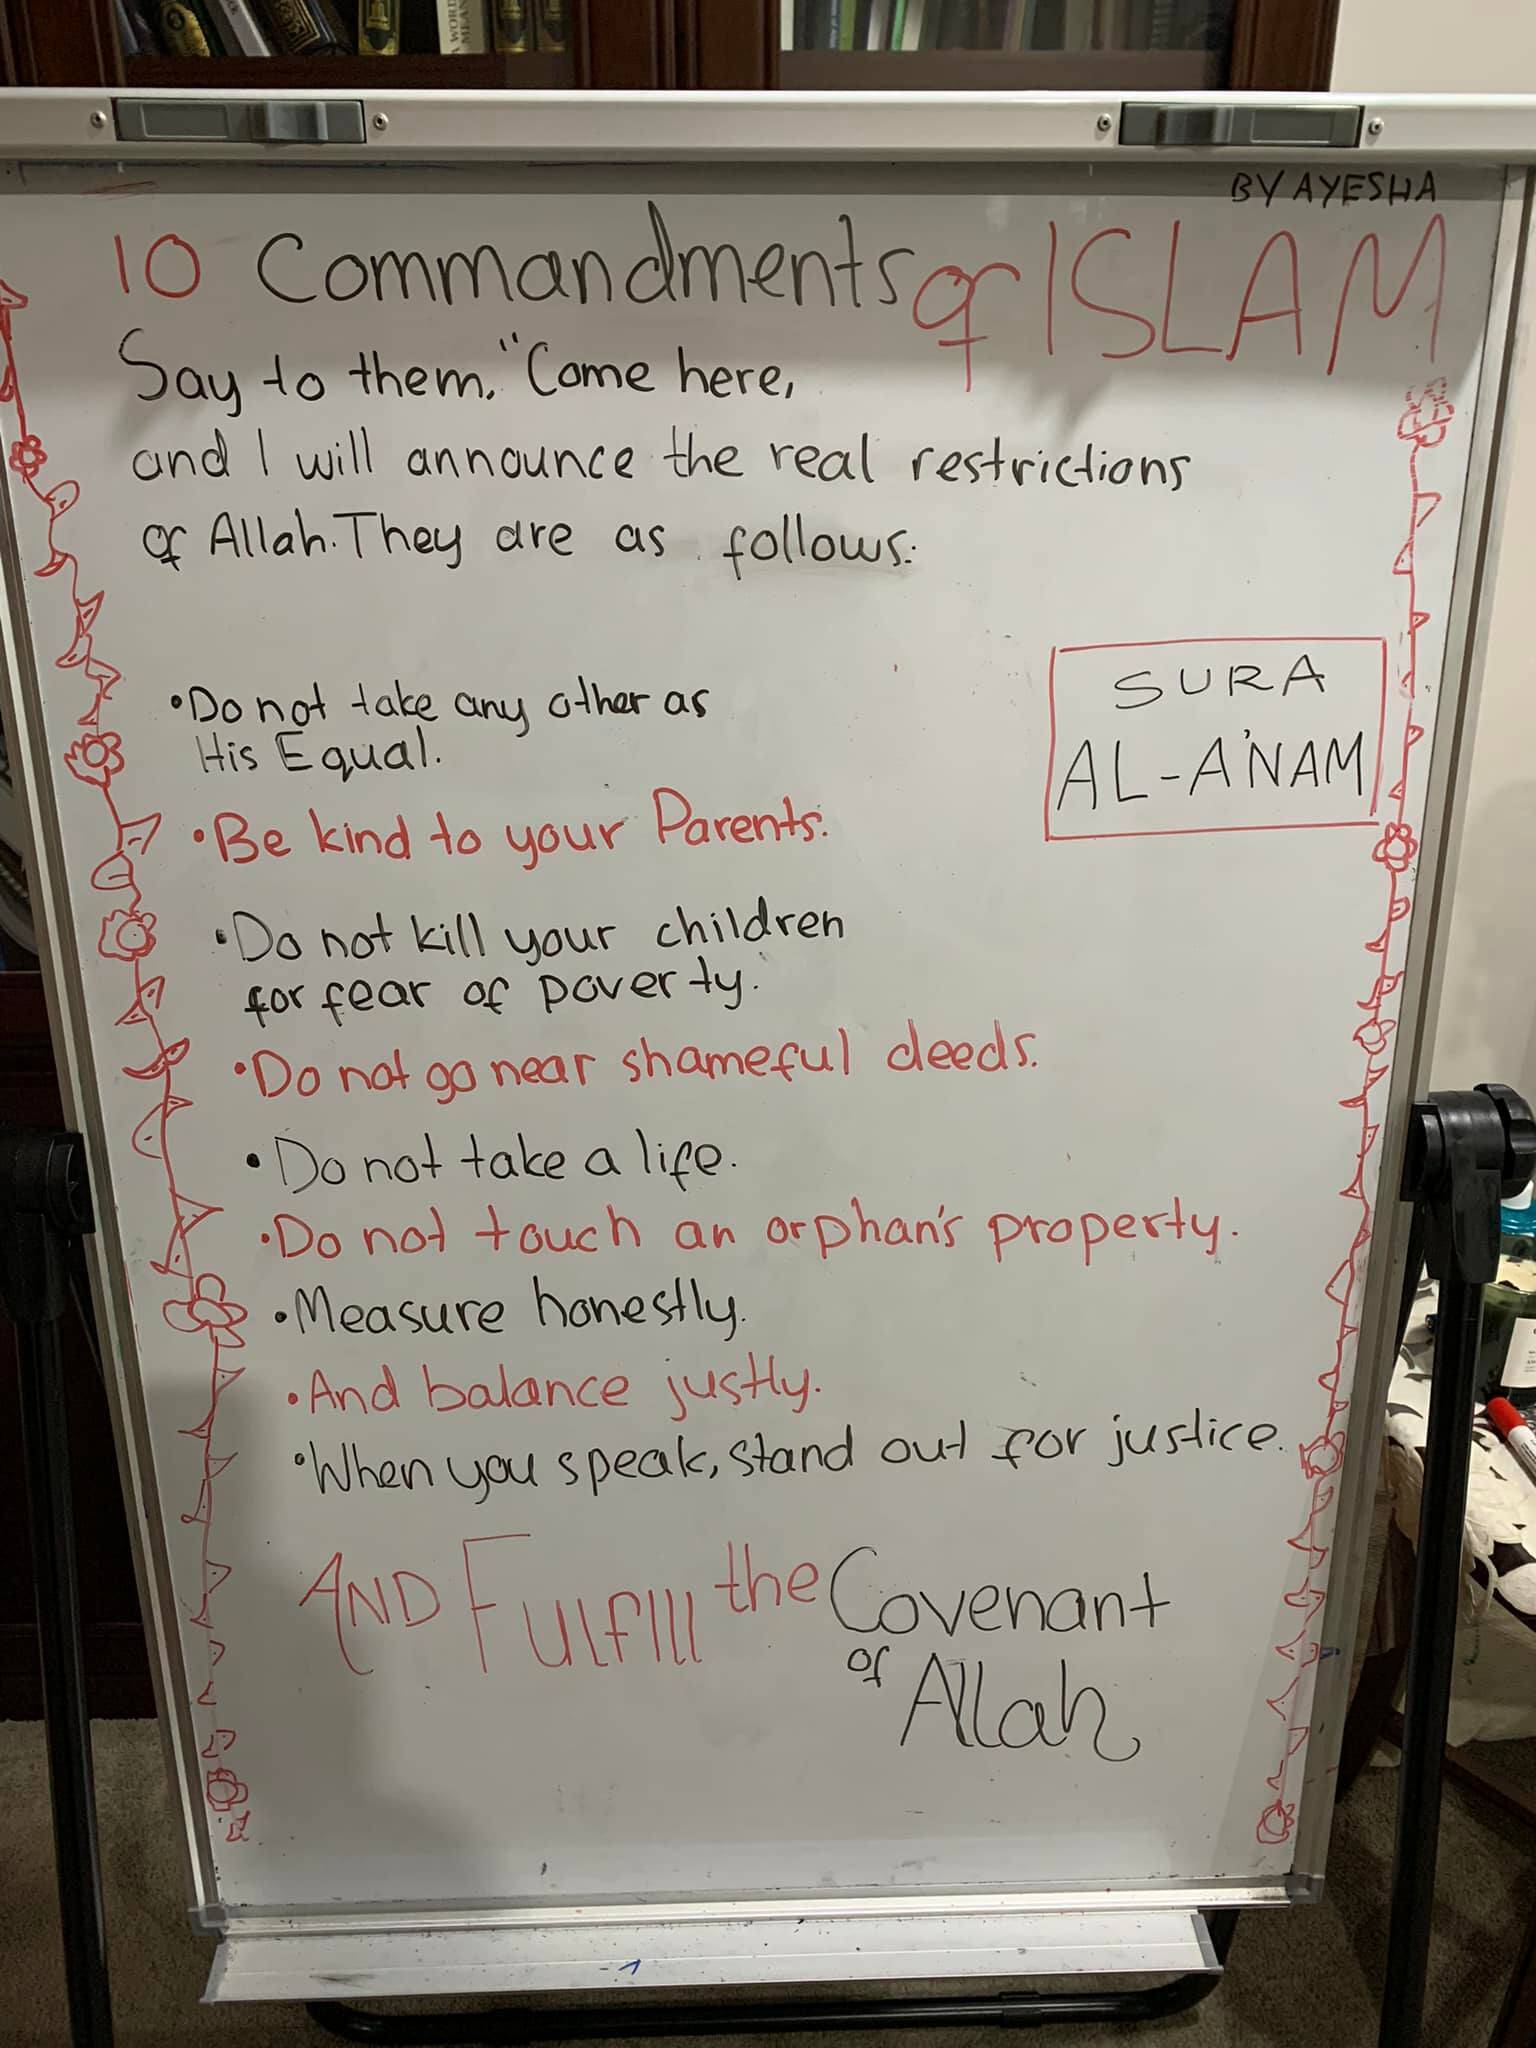 A WORD
MEAN
BY AYESHA
10 Commandments of ISLAM
Say to them, "Come here,
and I will announce the real restrictions
of Allah. They are as follows:
SURA
AL-A'NAM
•Do not take any other as
His Equal.
•Be kind to your Parents.
•Do not kill your children
for fear of poverty.
•Do not go near shameful deeds.
•Do not take a life.
•Do not touch an orphan's property.
•Measure honestly.
•And balance justly.
•When you speak, stand out for justice.
AND Fulfill the Covenant
of Allah